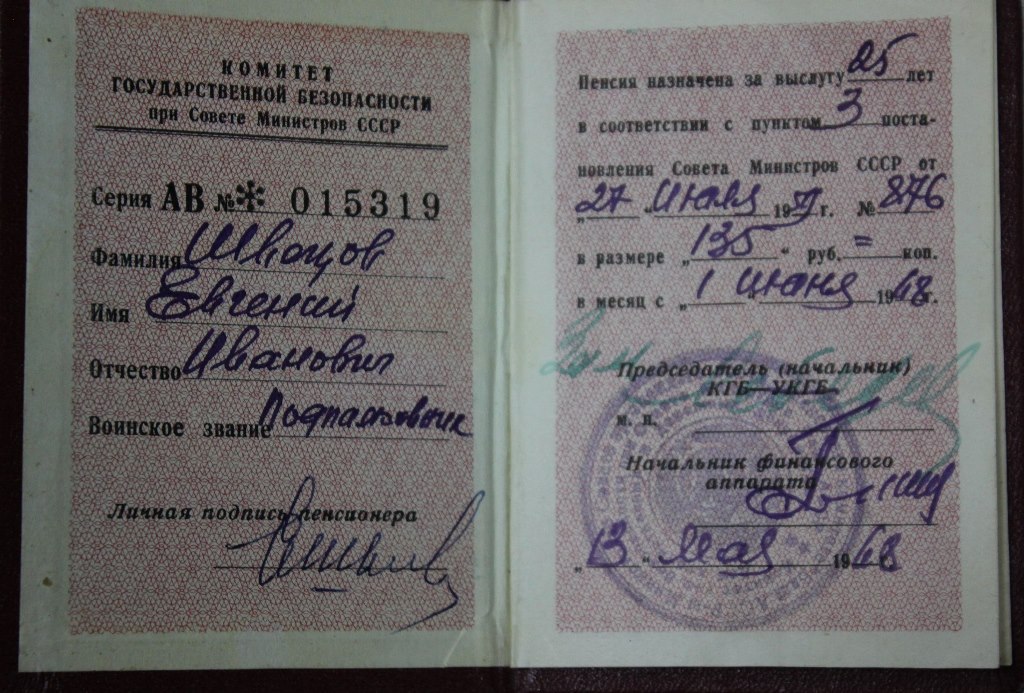 КОМИТЕТ
ГОСУДАРСТВЕННОЙ БЕЗОПАСНОСТИ
при Совете Министров СССР
Серия АВ № * 015319
Фамилия Швацов
Имя Евгений
Отчество Иванович
Воинское звание Подполковник
Личная подпись пенсионера
Пенсия назначена за выслугу 25 лет
в соответствии с пунктом 3 поста-
новления Совета Министров СССР от
„27" Июля 19 г. № 876
в размере „135" руб. = коп.
в месяц с „1 июня 1968г.
Зам
Председатель (начальник)
КГБ—УКГБ
м. п.
Начальник финансового
аппарата
„13" Мая 1968